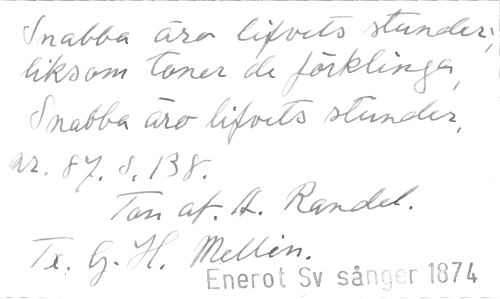 Snabba äro lifvets stunder;
liksom toner de förklinga,
Snabba äro lifvets stunder,
nr. 87. s. 138.
Ton af. A. Randel.
Tx. G. H. Mellin.
Enerot Sv sånger 1874